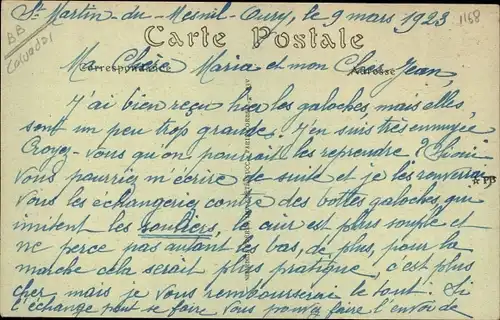 St Martin-du-Mesnil-Oury, le 9 mars 1923
1158
BB
Calvados
Carte Postale
Correspondance
Adresse
Ma Chère Maria et mon Cher Jean,
J'ai bien reçu hier les galoches, mais elles
sont un peu trop grandes. J'en suis très ennuyée
Croyez-vous qu'on pourrait les reprendre ? Si oui
vous pourriez m'écrire de suite et je les renverrai
Vous les échangeriez contre des bottes galoches, qui
imitent les souliers, le cuir est plus souple et
ne perce pas autant les bas, de plus, pour la
marche cela serait plus pratique, c'est plus
cher mais je vous rembourserai le tout. Si
l'échange peut se faire vous pouvez faire l'envoi de